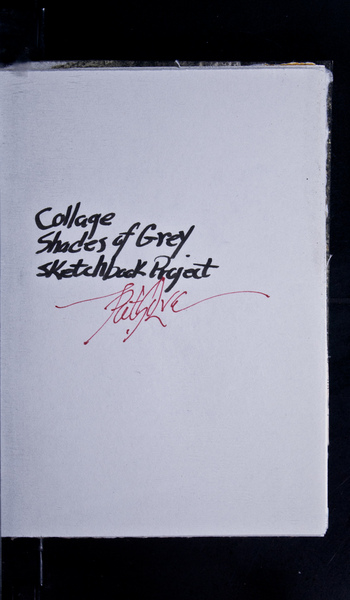 Collage
Shades of Grey
Sketchbook Project